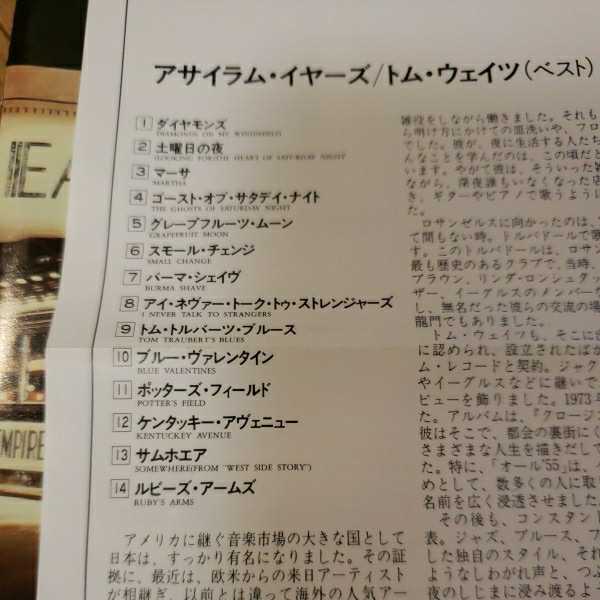 アサイラム・イヤーズ/トム・ウェイツ(ベスト)
1 ダイヤモンズ
DIAMONDS ON MY WINDSHIELD
2 土曜日の夜
(LOOKING FOR) THE HEART OF SATURDAY NIGHT
3 マーサ
MARTHA
4 ゴースト・オブ・サタデイ・ナイト
THE GHOSTS OF SATURDAY NIGHT
5 グレープフルーツ・ムーン
GRAPEFRUIT MOON
6 スモール・チェンジ
SMALL CHANGE
7 バーマ・シェイヴ
BURMA SHAVE
8 アイ・ネヴァー・トーク・トゥ・ストレンジャーズ
I NEVER TALK TO STRANGERS
9 トム・トルバーツ・ブルース
TOM TRAUBERT'S BLUES
10 ブルー・ヴァレンタイン
BLUE VALENTINES
11 ポッターズ・フィールド
POTTER'S FIELD
12 ケンタッキー・アヴェニュー
KENTUCKEY AVENUE
13 サムホエア
SOMEWHERE(FROM "WEST SIDE STORY")
14 ルビーズ・アームズ
RUBY'S ARMS
アメリカに継ぐ音楽市場の大きな国として
日本は、すっかり有名になりました。その証
拠に、最近は、欧米からの来日アーティスト
が相継ぎ、以前とは違って海外の人気アー
雑役をしながら働きました。それも
ら明け方にかけての皿洗いや、フロ
でした。彼が、夜に生活する人たち
んなことを学んだのは、この頃だと
います。やがて彼は、そういった雑
ながら、深夜誰もいなくなった店
き、ギターやピアノで歌うように
た。
ロサンゼルスに向かったのは、
て間もない時。トルバドールで歌
す。このトルバドールは、ロサン
最も歴史のあるクラブで、当時、
ブラウン、リンダ・ロンシュタッ
ザー、イーグルスのメンバーな
し、無名だった彼らの交流の場
龍門でもありました。
トム・ウェイツも、そこに出
に認められ、設立されたばか
ム・レコードと契約。ジャク
やイーグルスなどに継いで
ビューを飾りました。1973年
た。アルバムは、『クロージン
彼はそこで、都会の裏街にく
さまざまな人生を描きだして
た。特に、「オール'55」は、イ
めとして、数多くの人に取り
名前を広く浸透させました。
その後も、コンスタント
表。ジャズ、ブルース、フ
した独自のスタイル、それ
ようなしわがれ声と、つぶ
夜のしじまに浸み渡るよう
EA
EMPIRE